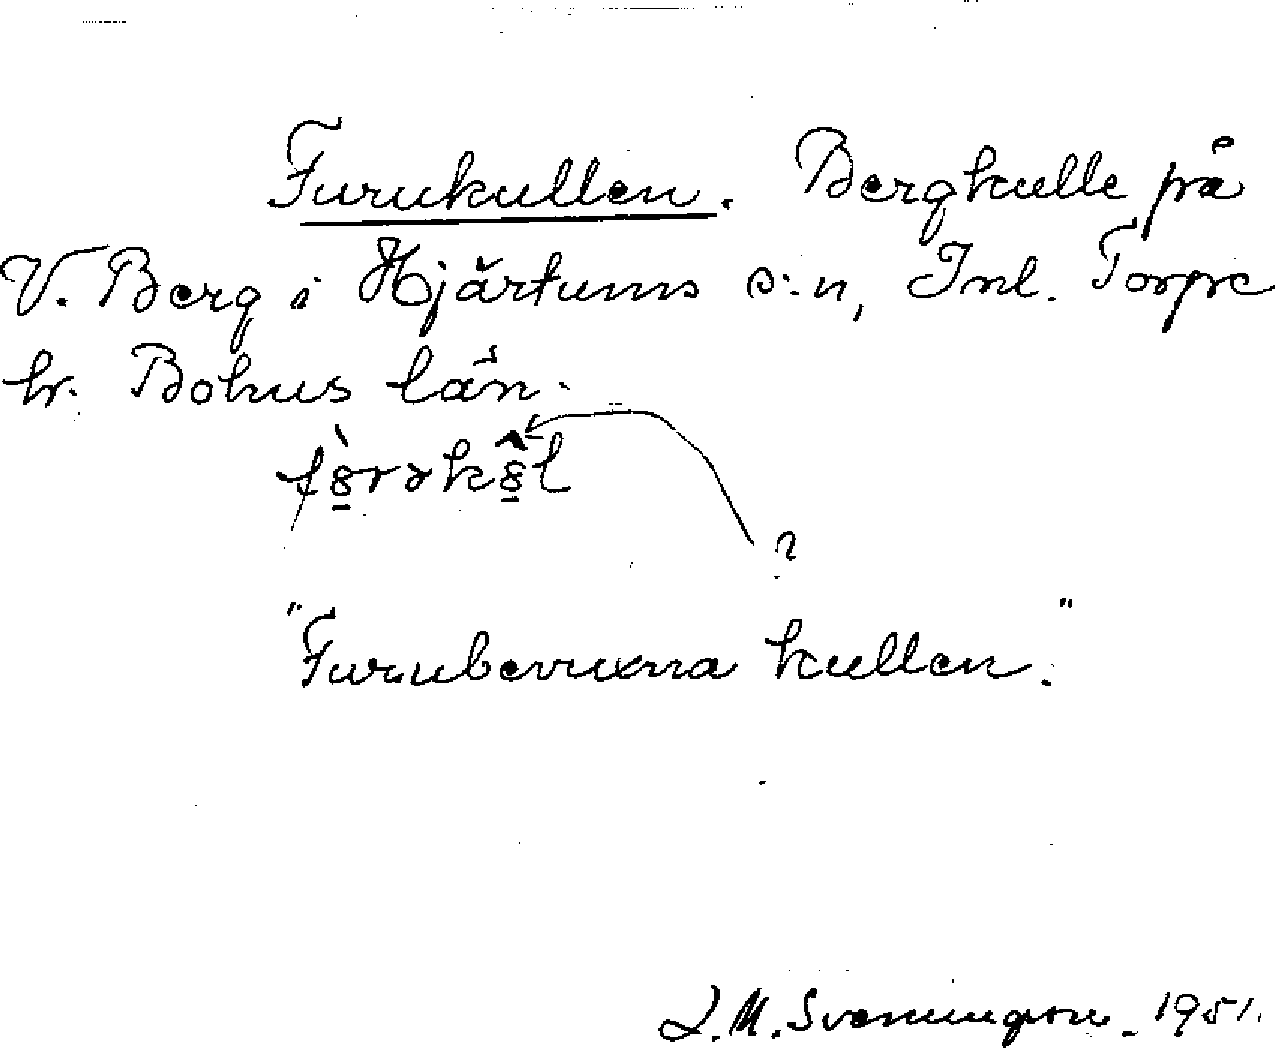 Furukullen. Bergkulle på
V. Berg i Hjärtums s:n, Inl. Torpe
hr. Bohus län.
?
"Furubevuxna kullen."
J. M. Svenningson. 1951.